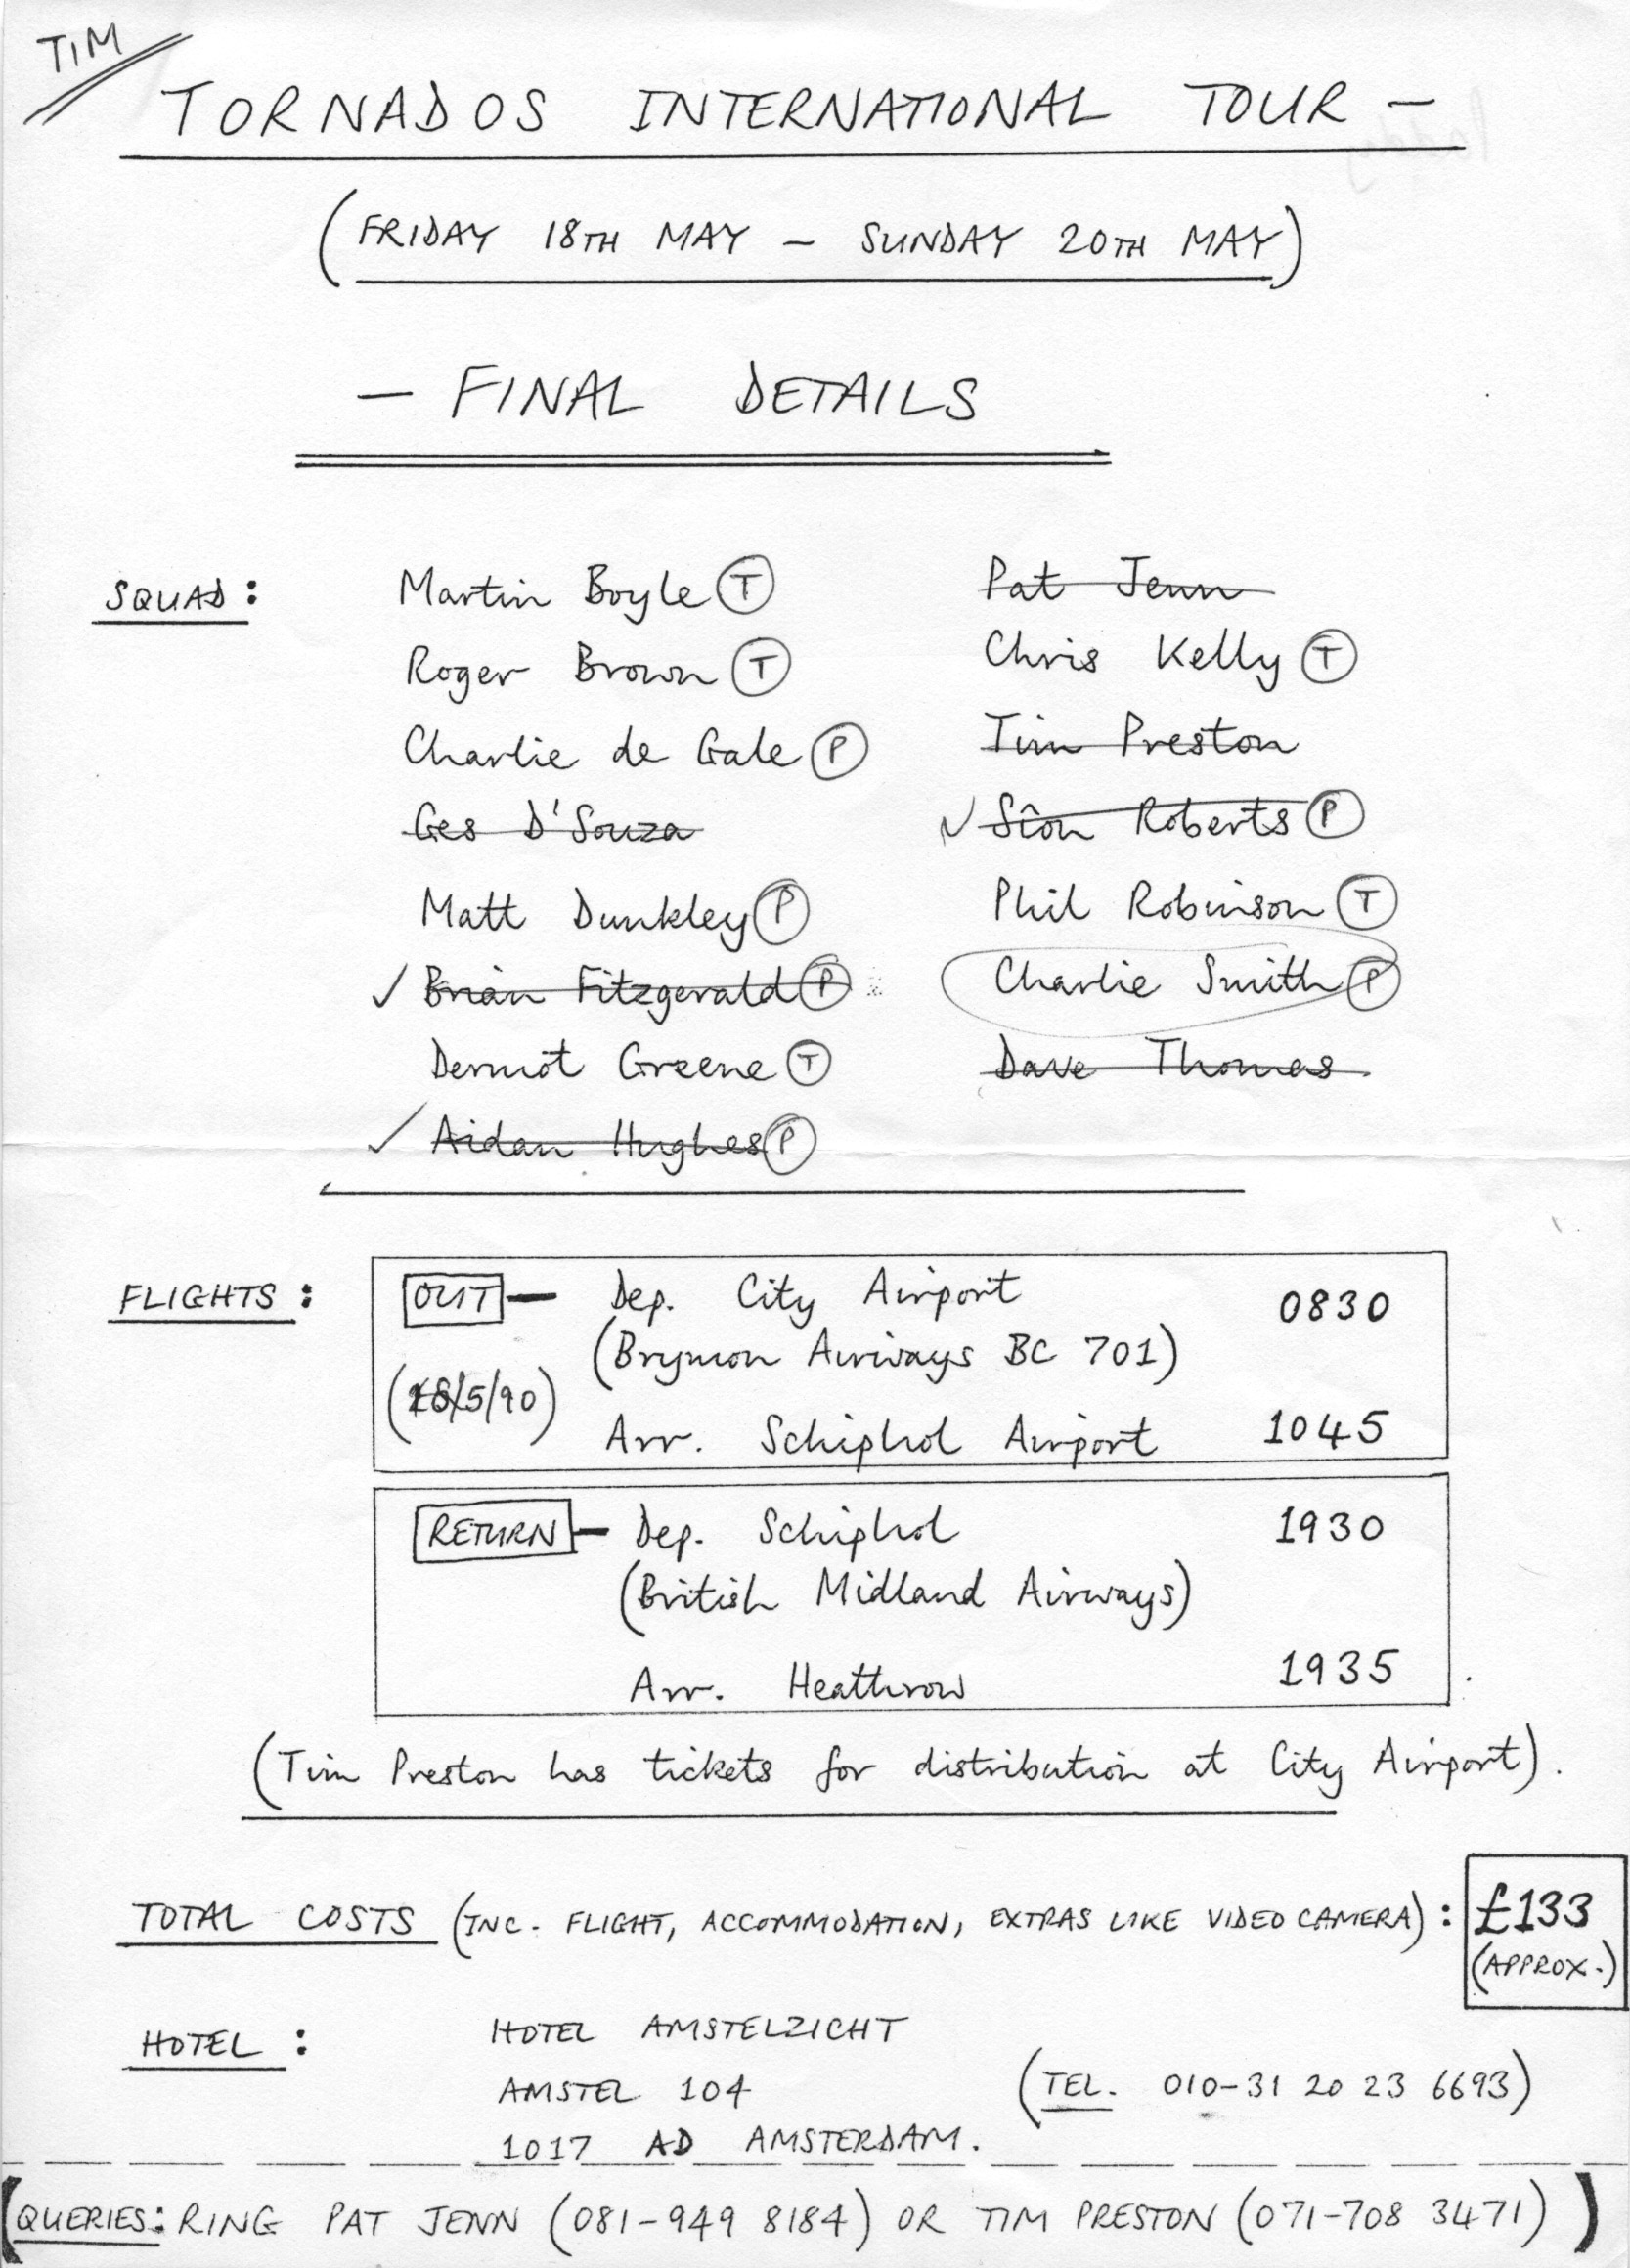 TIM
TORNADOS INTERNATIONAL TOUR —
(FRIDAY 18TH MAY – SUNDAY 20TH MAY)
– FINAL DETAILS
SQUAD:
Martin Boyle (T)
Roger Brown (T)
Charlie de Gale (P)
Ges D'Souza
Matt Dunkley (P)
✓ Brian Fitzgerald (P)
Dermot Greene (T)
✓ Aidan Hughes (P)
Pat Jenn
Chris Kelly (T)
Tim Preston
✓ Siôn Roberts (P)
Phil Robinson (T)
Charlie Smith (P)
Dave Thomas
FLIGHTS:
OUT – Dep. City Airport 0830
(Brymon Airways BC 701)
(18/5/90)
Arr. Schiphol Airport 1045
RETURN – Dep. Schiphol 1930
(British Midland Airways)
Arr. Heathrow 1935
(Tim Preston has tickets for distribution at City Airport).
TOTAL COSTS (INC. FLIGHT, ACCOMMODATION, EXTRAS LIKE VIDEO CAMERA): £133
(APPROX.)
HOTEL: HOTEL AMSTELZICHT
AMSTEL 104 (TEL. 010-31 20 23 6693)
1017 AD AMSTERDAM.
(QUERIES: RING PAT JENN (081-949 8184) OR TIM PRESTON (071-708 3471))